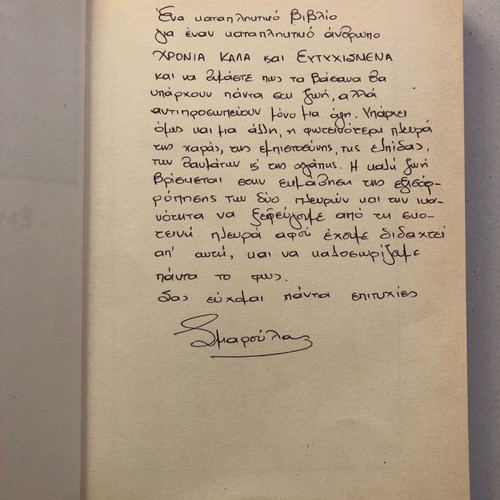 Ένα καταπληκτικό βιβλίο
για έναν καταπληκτικό άνθρωπο
ΧΡΟΝΙΑ ΚΑΛΑ και ΕΥΤΥΧΙΣΜΕΝΑ
και να θυμάστε πως τα βάσανα θα
υπάρχουν πάντα στη ζωή, αλλά
αντιπροσωπεύουν μόνο μια όψη. Υπάρχει
όμως και μια άλλη, η φωτεινότερη πλευρά
της χαράς, της εμπιστοσύνης, της ελπίδας,
των θαυμάτων κ της αγάπης. Η καλή ζωή
βρίσκεται στην εκμάθηση της εξισορ-
ρόπησης των δύο πλευρών και την ικα-
νότητα να ξεφεύγουμε από τη σκο-
τεινή πλευρά αφού έχουμε διδαχτεί
απ' αυτή, και να καλοσωρίζουμε
πάντα το φως.
Σας εύχομαι πάντα επιτυχίες
Σμαρούλα